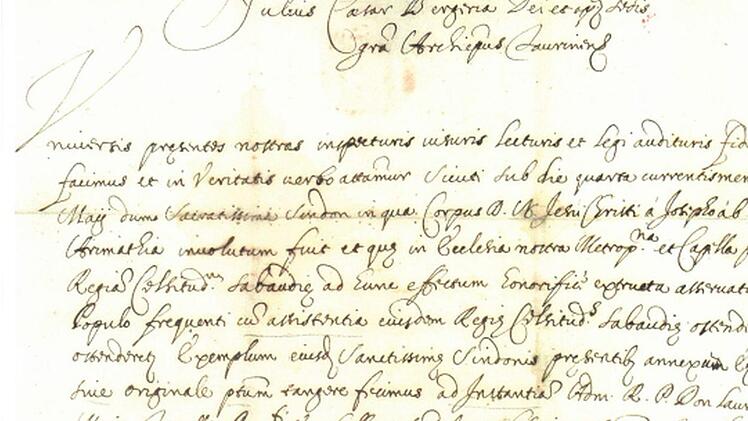 Julius Cæsar Bergeria Dei et apᶜᵃ sedis
gr̃a Archiep̃us Taurinens
Universis presentes nostras inspecturis visuris Lecturis et Legi audituris fid
facimus et in Veritatis verbo attamur Sicuti sub die quarta currentis men
Maij dum Sacratissima Sindon in qua Corpus D. N. Jesu Christi á Josepho ab
Arimathia involutum fuit et quę in Ecclesia nostra Metropⁿᵃ et Capella
Regiaˢ Celsitudⁿⁱˢ Sabaudię ad hunc effectum honorificˢ extructa asservat
Populo frequenti cũ assistentia eiusdem Regię Celsitudˢ Sabaudię ostend
ostenderet Exemplum eiusd Sanctissimę Sindonis presentib annexum
sive originale pt̃um tangere fecimus ad Instantia Adm. R. P. Don Laur